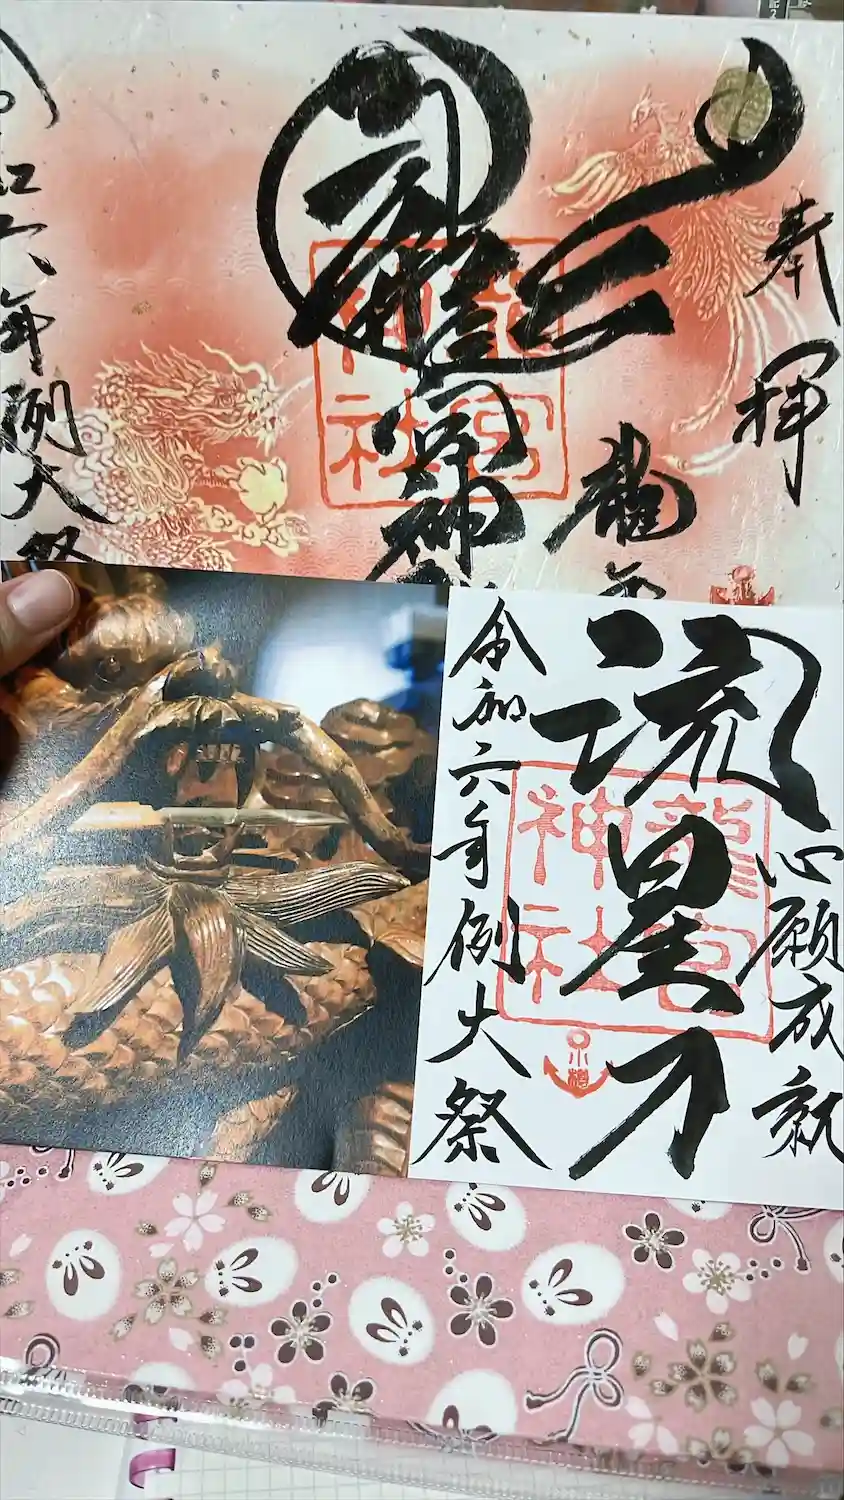 奉拝
龍宮神社
龍宮神社
令和六年例大祭
心願成就
流星刀
龍宮神社
小樽
令和六年例大祭